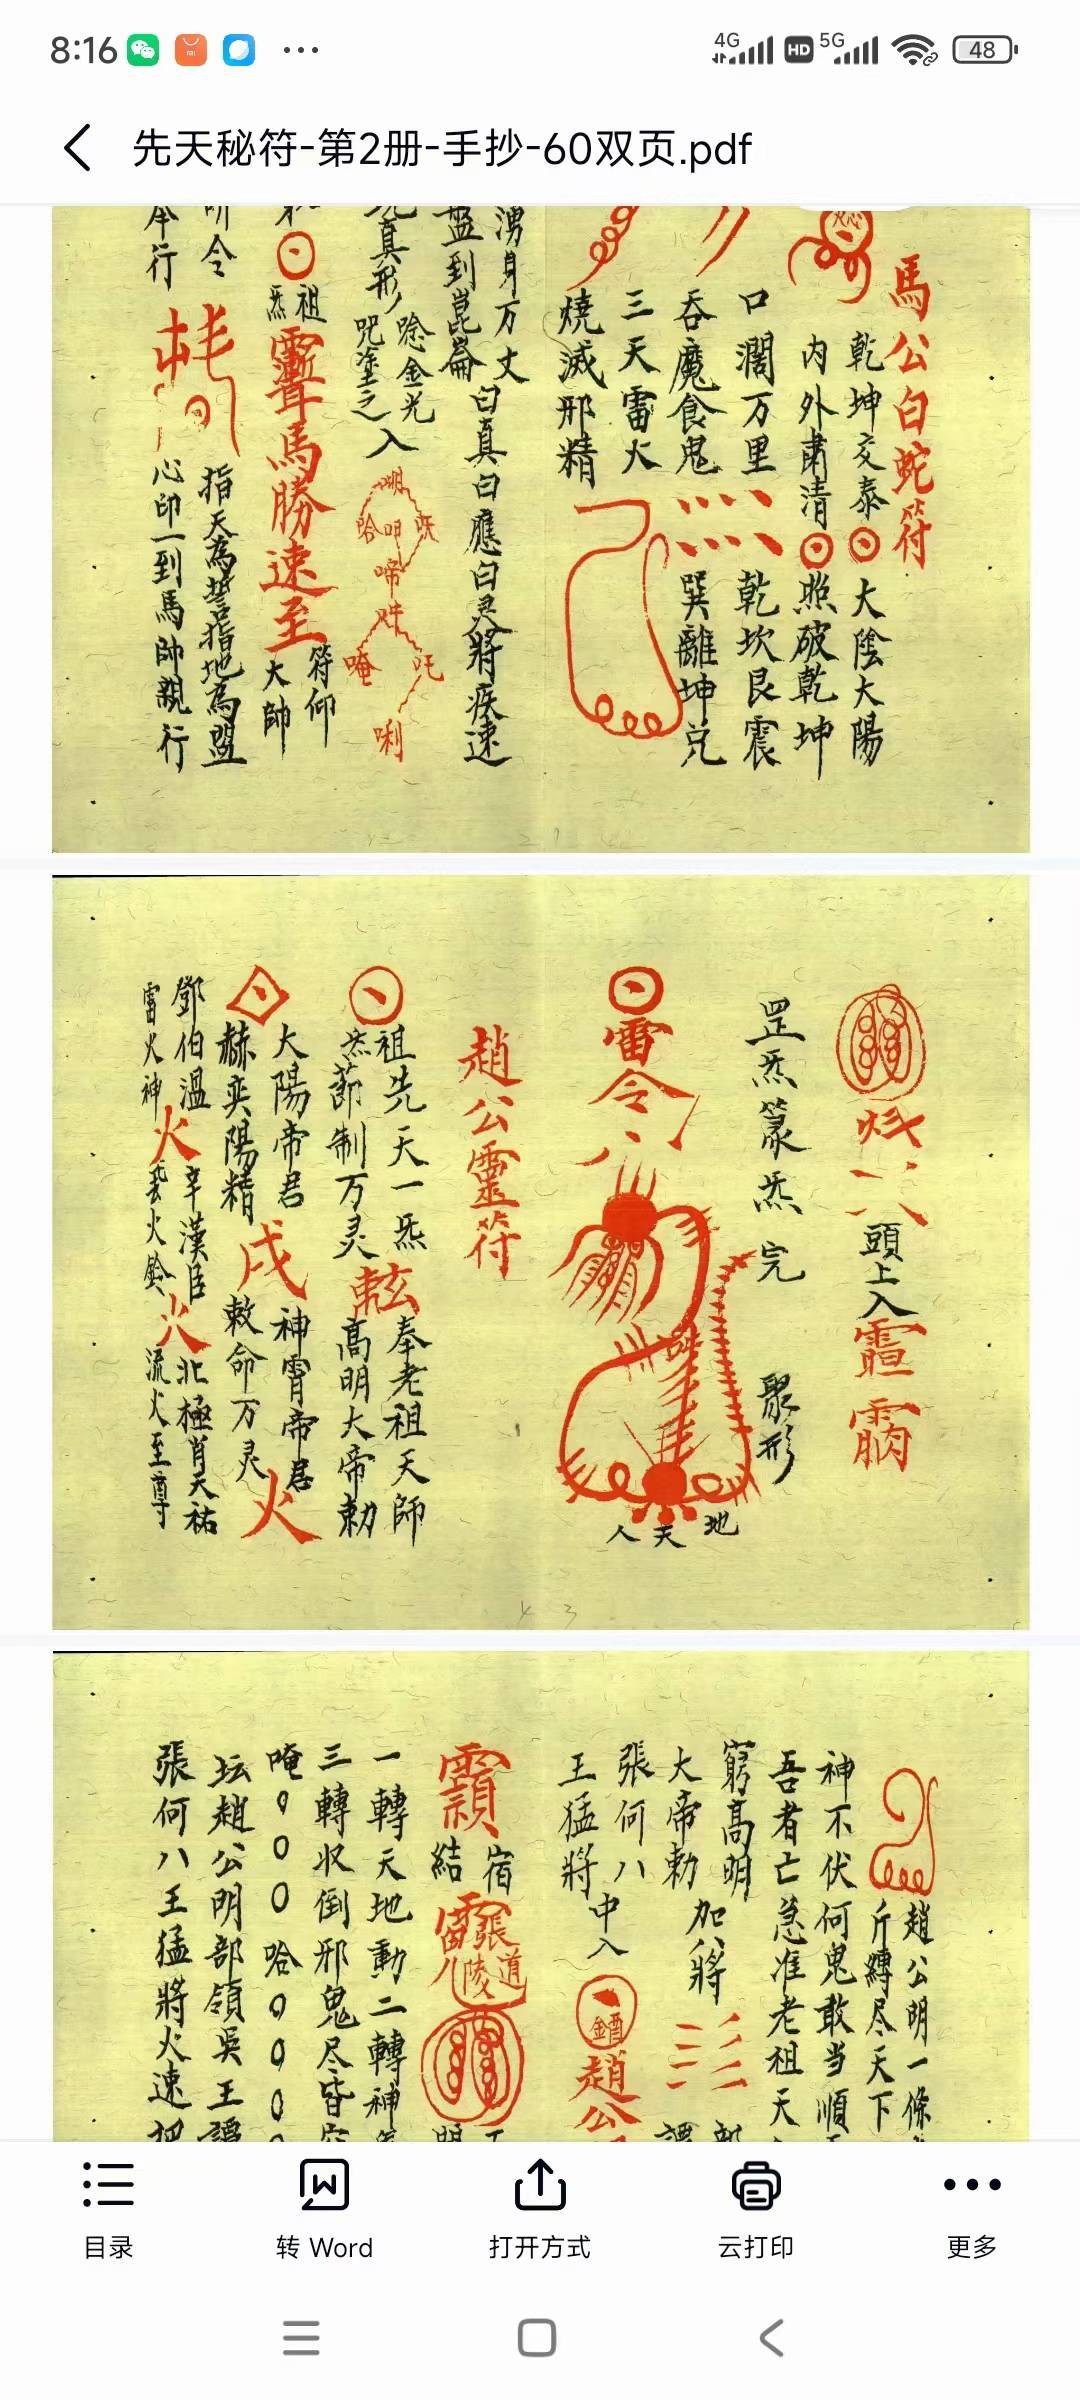 8:16
4G HD 5G 48
先天秘符-第2册-手抄-60双页.pdf
馬公白蛇符
乾坤交泰
大陰大陽
内外肅清
照破乾坤
口濶万里
乾坎艮震
吞魔食鬼
巽離坤兑
三天雷火
燒滅邪精
湧身万丈
盤到崑崙
日真日應日灵將疾速
真形
唸金光
咒塗之
入
祖炁
馬勝速至
符仰
大帥
听令
奉行
指天為誓指地為盟
心印一到馬帥親行
頭上入
罡炁篆炁完
聚形
雷令
人天地
趙公靈符
祖炁
先天一炁
節制万灵
奉老祖天師
高明大帝勅
大陽帝君
赫奕陽精
戌
神霄帝君
敕命万灵
火
鄧伯温
雷火神
火
辛漢臣
火鈴
火
北極肖天祐
流火至尊
趙公明一條
斤縛尽天下
神不伏何鬼敢当順
吾者亡急准老祖天
窮高明
大帝勅
加八將
張何八
王猛將
中入
趙公
宿
結
張
道
陵
一轉天地動二轉神
三轉収倒邪鬼尽昏
唵
哈
坛趙公明部領吳王
張何八王猛將火速
目录
转 Word
打开方式
云打印
更多